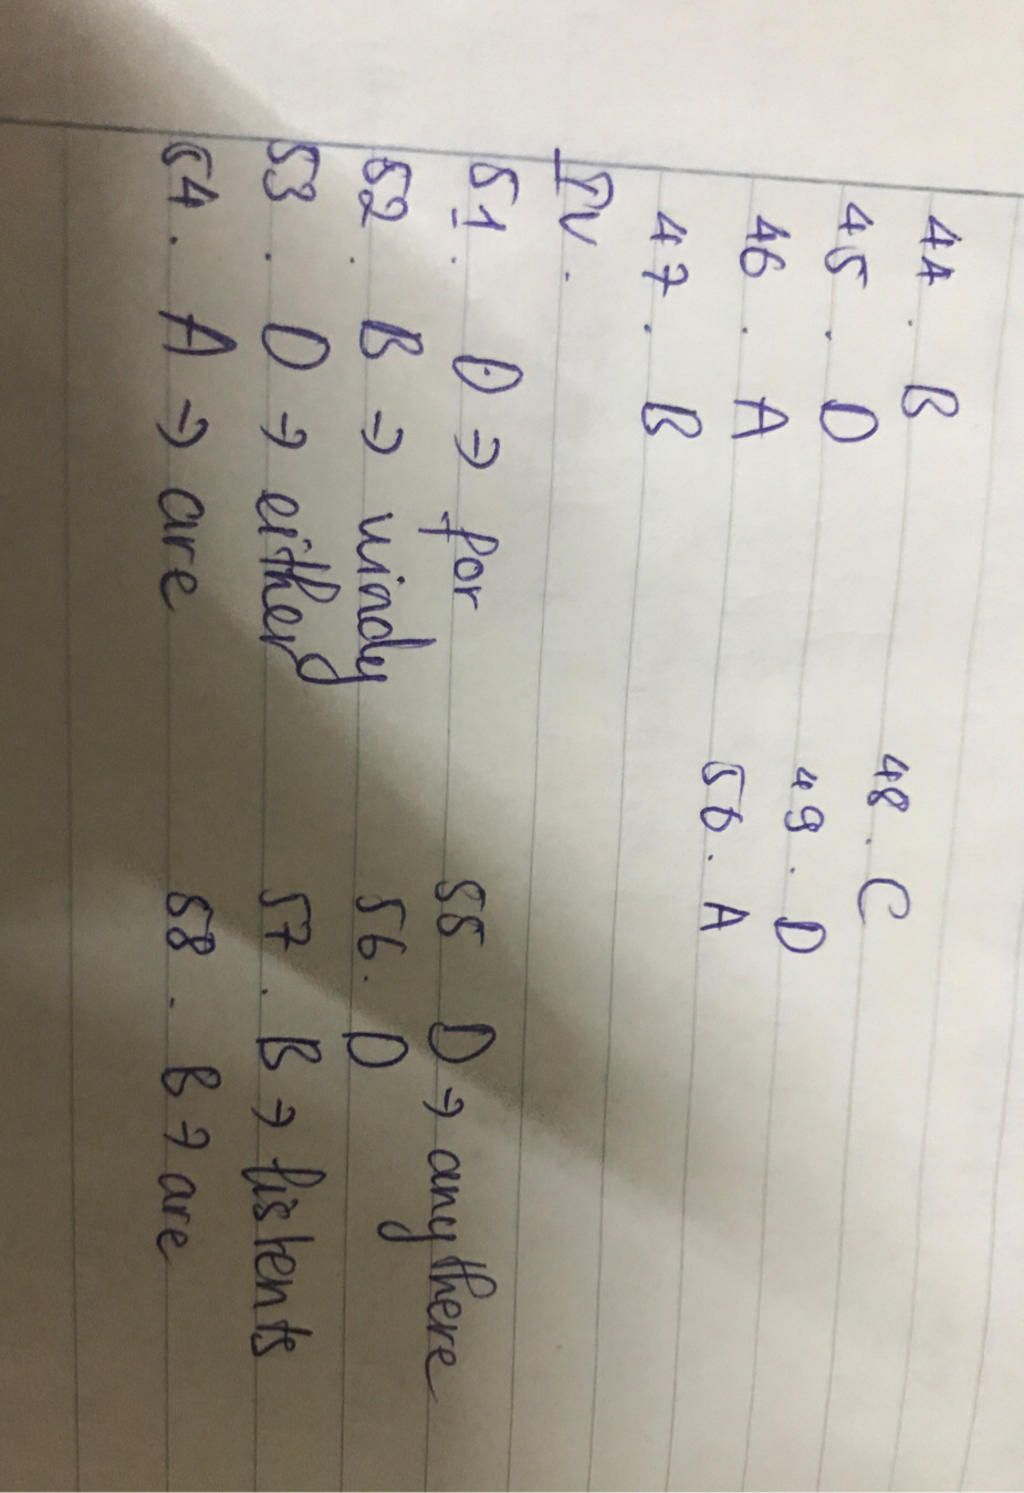 44. B
48. C
45. D
49. D
46. A
50. A
47. B
IV.
51. D → for
55 D → anythere
52. B → windy
56. D
53. D → either
57. B → listents
54. A → are
58. B → are